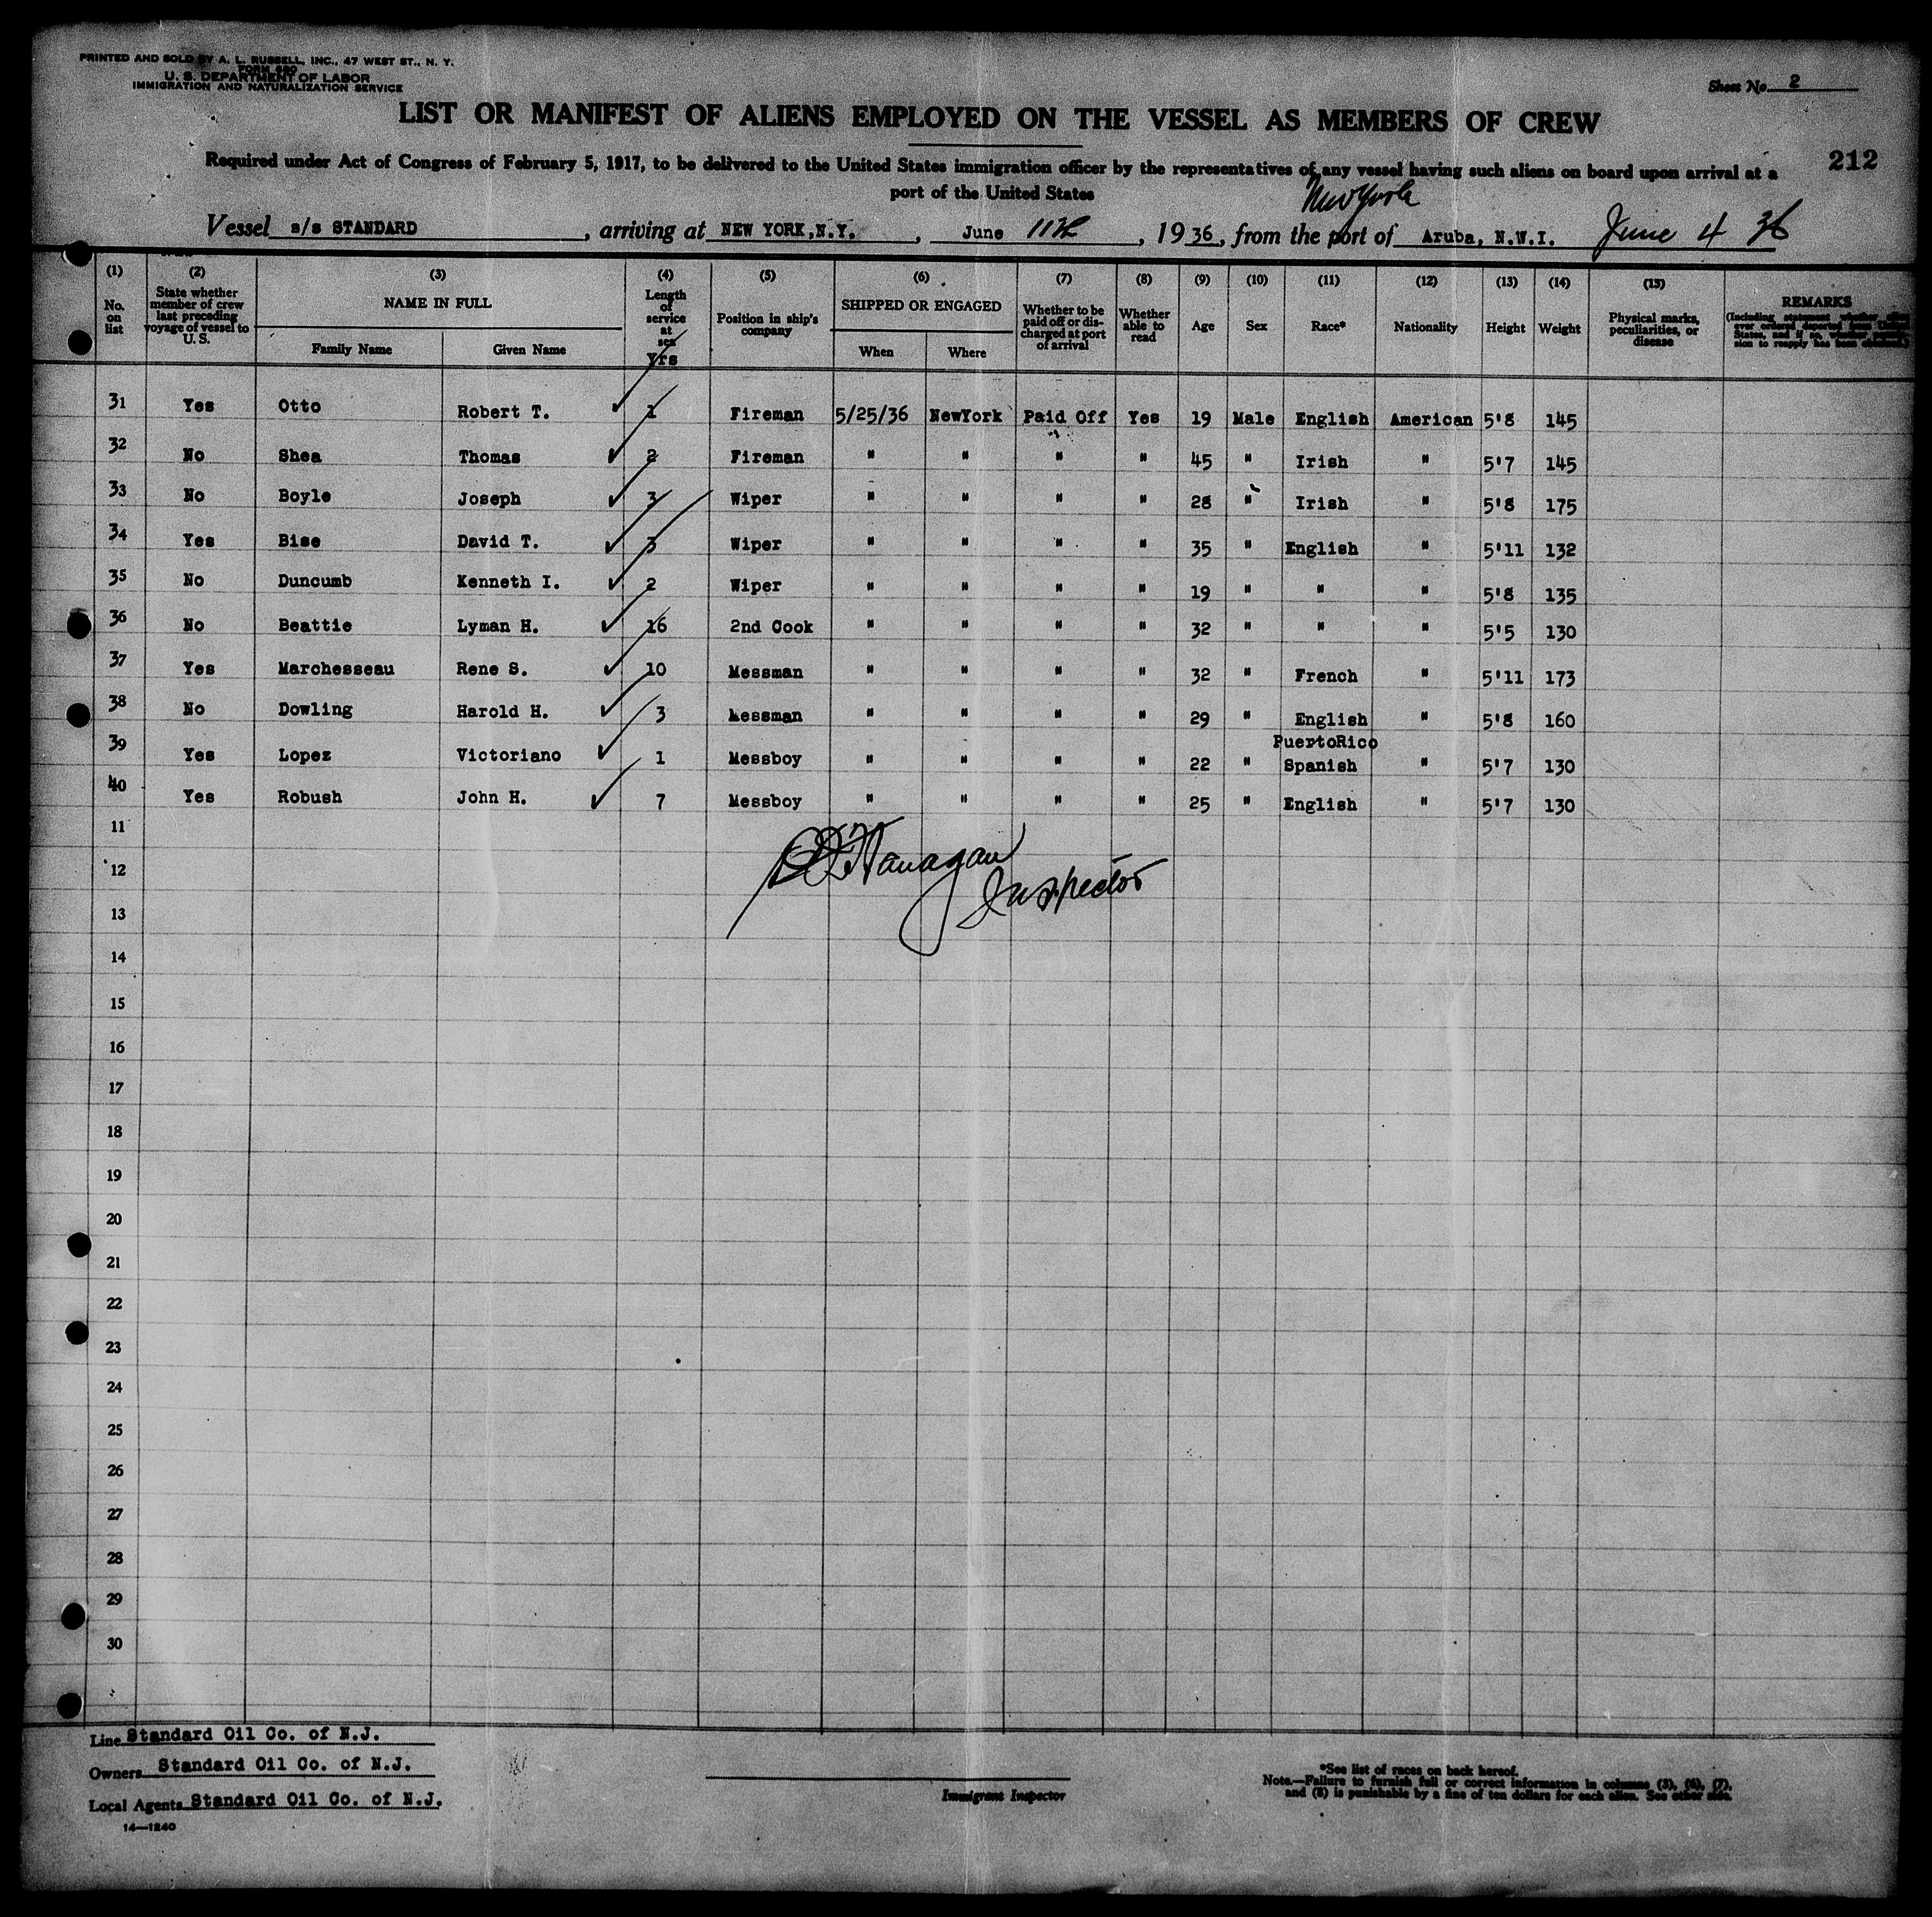 PRINTED AND SOLD BY A. L. RUSSELL, INC., 47 WEST ST., N. Y.
FORM 680
U. S. DEPARTMENT OF LABOR
IMMIGRATION AND NATURALIZATION SERVICE
Sheet No. 2
LIST OR MANIFEST OF ALIENS EMPLOYED ON THE VESSEL AS MEMBERS OF CREW
212
Required under Act of Congress of February 5, 1917, to be delivered to the United States immigration officer by the representatives of any vessel having such aliens on board upon arrival at a
port of the United States
New York
Vessel s/s STANDARD, arriving at NEW YORK, N.Y., June 11th, 1936, from the port of Aruba, N.W.I. June 4 36
(1) (2) (3) (4) (5) (6) (7) (8) (9) (10) (11) (12) (13) (14) (15)
No. on list
State whether member of crew last preceding voyage of vessel to U.S.
NAME IN FULL
Family Name Given Name
Length of service at sea Yrs
Position in ship's company
SHIPPED OR ENGAGED
When Where
Whether to be paid off or discharged at port of arrival
Whether able to read
Age
Sex
Race*
Nationality
Height
Weight
Physical marks, peculiarities, or disease
REMARKS
(Including statement whether alien ever ordered deported from United States, and if so, whether permission to reapply has been obtained.)
31 Yes Otto Robert T. ✓ 1 Fireman 5/25/36 NewYork Paid Off Yes 19 Male English American 5'8 145
32 No Shea Thomas ✓ 2 Fireman " " " " 45 " Irish " 5'7 145
33 No Boyle Joseph ✓ 3 Wiper " " " " 28 " Irish " 5'8 175
34 Yes Bise David T. ✓ 3 Wiper " " " " 35 " English " 5'11 132
35 No Duncumb Kenneth I. ✓ 2 Wiper " " " " 19 " " " 5'8 135
36 No Beattie Lyman H. ✓ 16 2nd Cook " " " " 32 " " " 5'5 130
37 Yes Marchesseau Rene S. ✓ 10 Messman " " " " 32 " French " 5'11 173
38 No Dowling Harold H. ✓ 3 Messman " " " " 29 " English " 5'8 160
PuertoRico
39 Yes Lopez Victoriano ✓ 1 Messboy " " " " 22 " Spanish " 5'7 130
40 Yes Robush John H. ✓ 7 Messboy " " " " 25 " English " 5'7 130
11
Flanagan
12
Inspector
13
14
15
16
17
18
19
20
21
22
23
24
25
26
27
28
29
30
Line Standard Oil Co. of N.J.
Owners Standard Oil Co. of N.J.
Local Agents Standard Oil Co. of N.J.
14—1240
Immigrant Inspector
*See list of races on back hereof.
Note.—Failure to furnish full or correct information in columns (3), (6), (7),
and (8) is punishable by a fine of ten dollars for each alien. See other side.